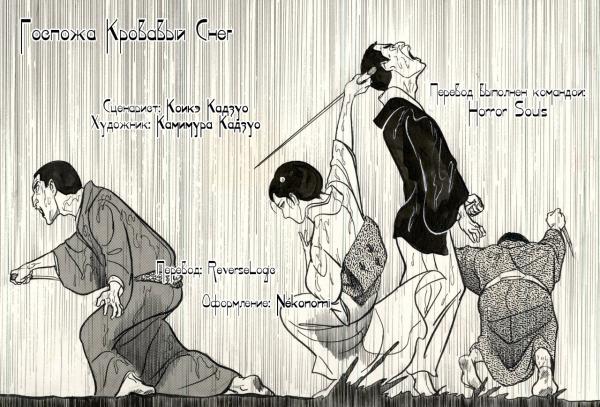 Госпожа Кровавый Снег
Сценарист: Коикэ Кадзуо
Художник: Камимура Кадзуо
Перевод выполнен командой:
Horror Souls
Перевод: ReverseLogic
Оформление: Nekonomi